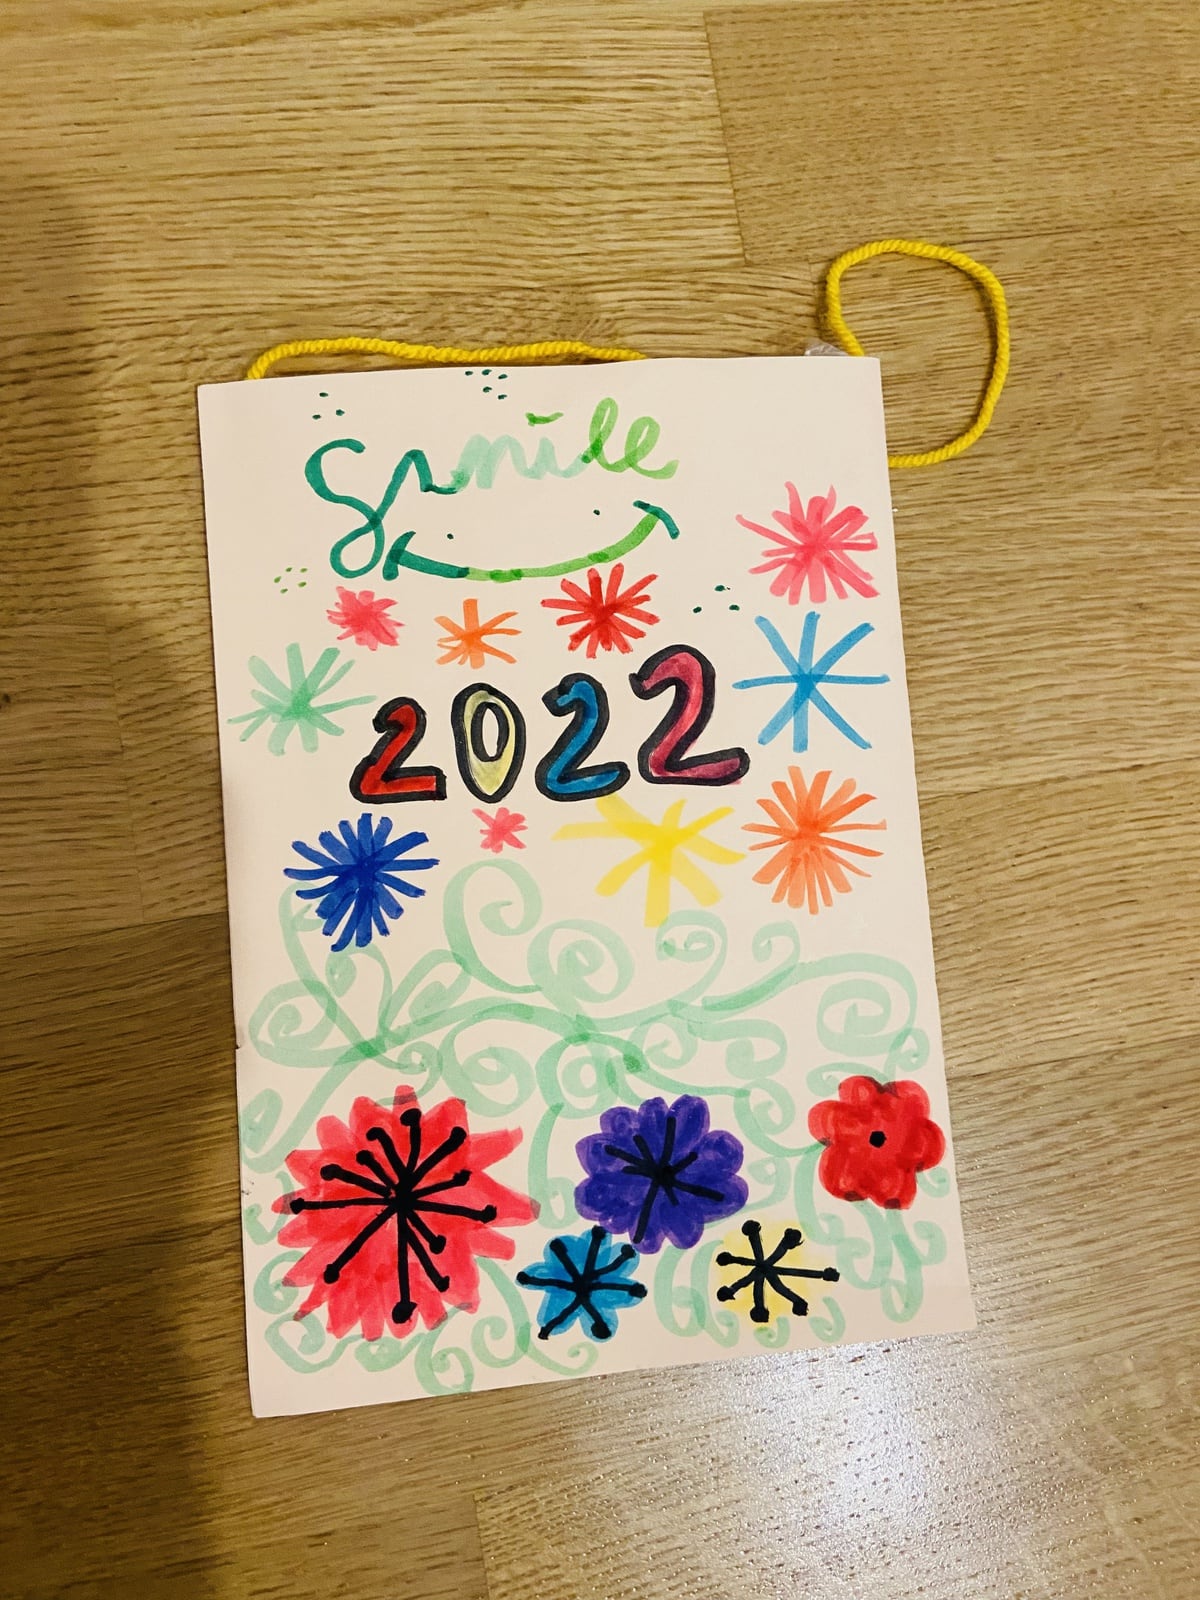 Smile
2022